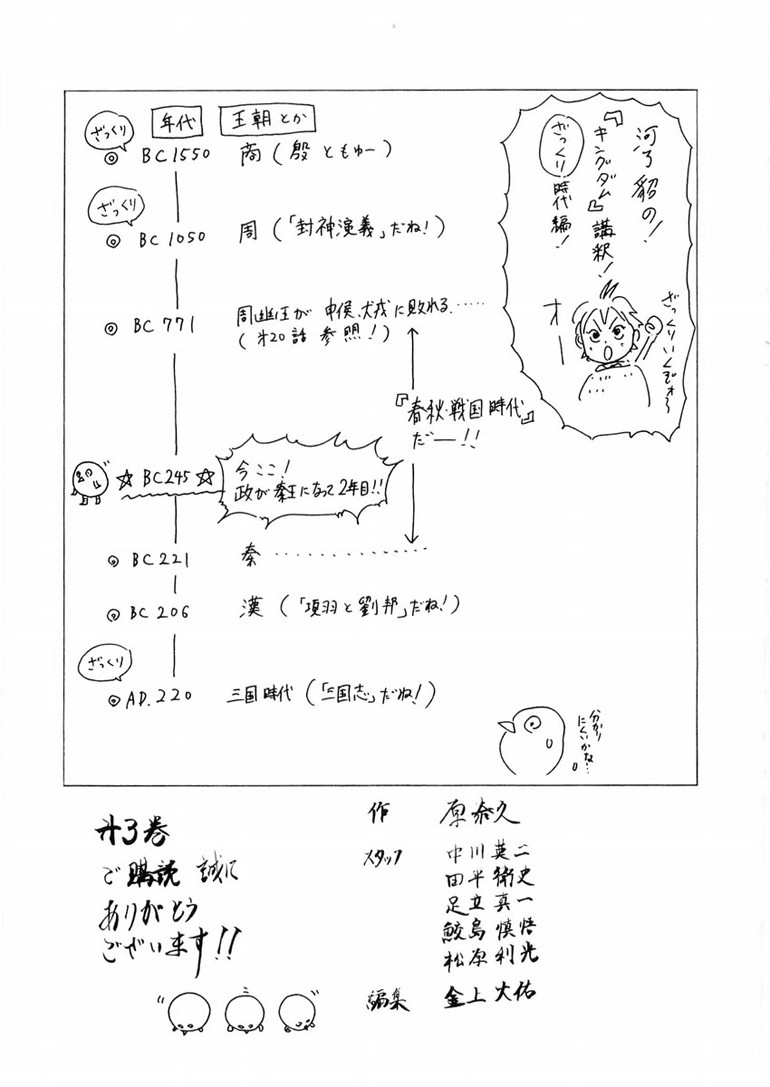 河了貂の!
『キングダム』講釈!
ざっくり時代編!
ざっくりいくぞォ〜
オ―
年代
王朝とか
ざっくり
◎ BC1550 商(殷ともゆー)
ざっくり
◎ BC1050 周(「封神演義」だね!)
◎ BC771 周幽王が申侯、犬戎に敗れる……
(第20話 参照!)
『春秋・戦国時代』
だ―!!
☆BC245☆
今ここ!
政が秦王になって2年目!!
◎ BC221 秦
◎ BC206 漢(「項羽と劉邦」だね!)
ざっくり
◎ AD.220 三国時代(「三国志」だね!)
分かり
にくいかな…
第3巻
ご購読 誠に
ありがとう
ございます!!
作 原泰久
スタッフ 中川英二
田平衛史
足立真一
鮫島慎悟
松原利光
編集 金上大佑